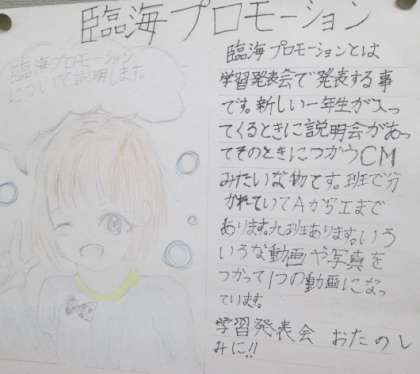 臨海プロモーション
臨海プロモーション
について説明します。
臨海プロモーションとは
学習発表会で発表する事
です。新しい一年生が入っ
てくるときに説明会があっ
てそのときにつかうCM
みたいな物です。班で分
かれていてAからエまで
あります。九班あります。いろ
いろな動画や写真を
つかって1つの動画になっ
ています。
学習発表会 おたのし
みに!!